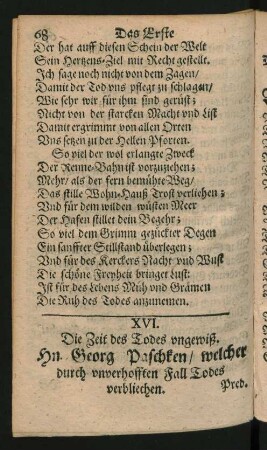 68 Das Erste
Der hat auff diesen Schein der Welt
Sein Hertzens-Ziel mit Recht gestellt.
Ich sage noch nicht von dem Zagen/
Damit der Tod vns pflegt zu schlagen/
Wie sehr wir für ihm sind gerüst;
Nicht von der starcken Macht vnd List
Damit ergrimmt von allen Orten
Vns setzen zu der Hellen Pforten.
So viel der wol erlangte Zweck
Der Renne-Bahn ist vorzuziehen;
Mehr/ als der fern bemühte Weg/
Das stille Wohn-Hauß Trost verliehen;
Vnd für dem wilden wüsten Meer
Der Hafen stillet dein Begehr;
So viel dem Grimm gezückter Degen
Ein sanffter Stillstand überlegen;
Vnd für des Kerckers Nacht vnd Wust
Die schöne Freyheit bringet Lust:
Ist für des Lebens Müh vnd Grämen
Die Ruh des Todes anzunemen.
XVI.
Die Zeit des Todes vngewiß.
Hn. Georg Paschken/ welcher
durch vnverhofften Fall Todes
verblichen.
Pred.